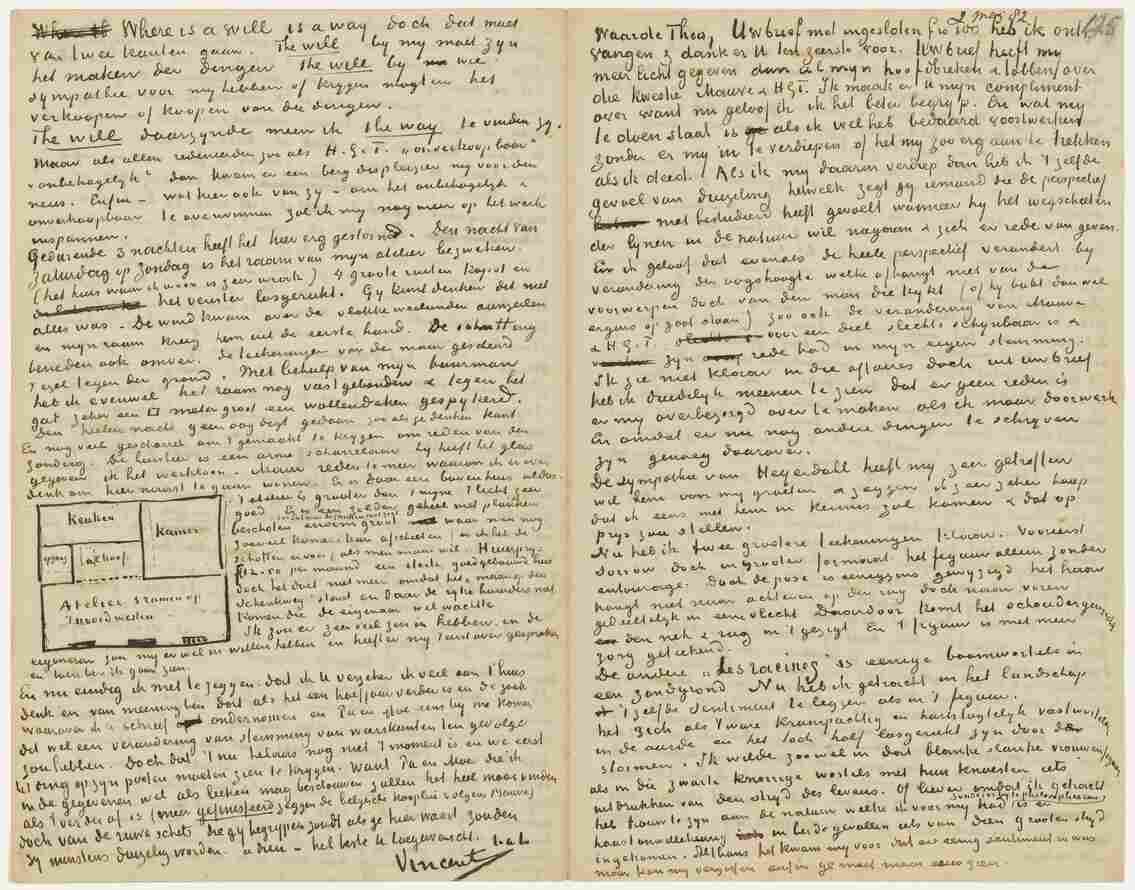 Where is a will is a way doch dat moet
van twee kanten gaan. The will by my moet zyn
het maken der dingen the will by wie
sympathie voor my hebben of krygen mogten het
verkoopen of koopen van die dingen.
The will daarzynde meen ik the way te vinden zy.
Maar als allen redeneerden zoo als H.G.T. "onverkoopbaar"
"onbehagelyk" dan kwam er een berg displaizier my voor den
neus. Enfin – wat hier ook van zy – om het onbehagelyk &
onverkoopbaar te overwinnen zal ik my nog meer op het werk
inspannen.
Gedurende 3 nachten heeft het hier erg gestormd. Den nacht van
Zaturdag op Zondag is het raam van myn atelier bezweken
(het huis waar ik woon is zeer wrak) 4 groote ruiten kapot en
het venster losgerukt. Gy kunt denken dat het niet
alles was – De wind kwam over de vlakke weilanden aanzeilen
en myn raam kreeg hem uit de eerste hand. De schutting
beneden ook omver. de teekeningen van de muur gescheurd
't ezel tegen den grond. Met behulp van myn buurman
heb ik evenwel het raam nog vast gebonden & tegen het
gat zeker een □ meter groot een wollen deken gespykerd.
Den heelen nacht geen oog digt gedaan zoo als ge denken kunt
En nog veel gescharrel om 't gemaakt te krygen om reden van den
Zondag. De huisbaas is een arme scharrelaar hy heeft het glas
gegeven ik het werkloon. Maar reden te meer waarom ik er over
denk om hier naast te gaan wonen. Er is daar een bovenhuis aldus
't atelier is grooter dan 't myne 't licht zeer
goed. Er is een zolder geheel met planken
beschoten
enorm groot waar men nog
zooveel kamers kan afschieten
schotten er voor) als men maar wil. Huurprys
f 12.50 per maand een sterk goedgebouwd huis
doch het doet niet meer omdat het "maar aan den
Schenkweg" staat en daar de ryke huurders niet
komen die de eigenaar wel wachtte
Ik zou er zeer veel zin in hebben. en de
eigenaar zou my er wel in willen hebben en heeft er my 't eerst over gesproken
en toen ben ik gaan zien.
Keuken
Kamer
gang
alkoof
Atelier 3 ramen op
't noordwesten
En nu eindig ik met te zeggen dat ik U verzeker ik veel aan 't huis
denk en van meening ben dat als het een half jaar verder is en de zaak
waarover ik u schreef ondernomen en Pa en Moe eens by me komen
dat wel een verandering van stemming van weerskanten ten gevolge
zou hebben. Doch dat 't nu helaas nog niet 't moment is en we eerst
't ding op zyn pooten moeten zien te krygen. Want Pa en Moe die ik
in de gegevens wel als leeken mag beschouwen zullen het heel mooi vinden
als 't verder af is (meer gefinisseerd zeggen de belgische kooplui volgens Mauve)
doch van de ruwe schets die gy begrypen zoudt als ge hier waart zouden
zy minstens duizelig worden. – adieu – het beste U toegewenscht. t.à.t.
Vincent
2 Mei 82
195
Waarde Theo, Uw brief met ingesloten fr 100 heb ik ont-
vangen & dank er U ten zeerste voor. Uw brief heeft my
meer licht gegeven dan al myn hoofdbreken & tobben over
die kwestie Mauve & HGT. Ik maak er u myn compliment
over want nu geloof ik ik het beter begryp. En wat my
te doen staat is als ik wel heb bedaard voortwerken
zonder er my in te verdiepen of het my zoo erg aan te trekken
als ik deed. Als ik my daarin verdiep dan heb ik 't zelfde
gevoel van duizeling hetwelk zegt gy iemand die de perspectief
niet bestudeerd heeft gevoelt wanneer hy het wegschieten
der lynen in de natuur wil nagaan & zich er rede van geven.
En ik geloof dat evenals de heele perspectief verandert by
verandering der ooghoogte welke afhangt niet van de
voorwerpen doch van den man die kykt (of hy bukt dan wel
ergens op gaat staan) zoo ook de verandering van Mauve
& H.G.T. voor een deel slechts schynbaar is &
zyn rede had in myn eigen stemming.
Ik zie niet klaar in die affaires doch uit uw brief
heb ik duidelyk meenen te zien dat er geen reden is
er my overbezorgd over te maken als ik maar doorwerk
En omdat er nu nog andere dingen te schryven
zyn genoeg daarover.
De sympathie van Heyerdahl heeft my zeer getroffen
wil hem voor my groeten & zeggen ik zeer zeker hoop
dat ik eens met hem in kennis zal komen & dat op
prys zou stellen.
Nu heb ik twee grootere teekeningen klaar. Vooreerst
Sorrow doch in grooter formaat het figuur alleen zonder
entourage. Doch de pose is eenigzins gewyzigd het haar
hangt niet neer achterom op den rug doch naar voren
gedeeltelyk in een vlecht. Daardoor komt het schoudergewricht
den nek & rug in 't gezigt En 't figuur is met meer
zorg geteekend.
De andere "Les racines" is eenige boomwortels in
een zandgrond Nu heb ik getracht in het landschap
't zelfde sentiment te leggen als in 't figuur.
het zich als 't ware krampachtig en hartstogtelyk vastwortelen
in de aarde en het toch half losgerukt zyn door de
stormen. Ik wilde zoowel in dat blanke slanke vrouwenfiguur
als in die zwarte knoerige wortels met hun knoesten iets
uitdrukken van den stryd des levens. of liever omdat ik getracht
heb trouw te zijn aan de natuur welke ik voor my had
zonder er by te philosopheeren, is er
haast onwillekeurig in beide gevallen iets van dien grooten stryd
ingekomen. Althans het kwam my voor dat er eenig sentiment in was
maar kan my vergissen enfin ge moet maar eens zien.